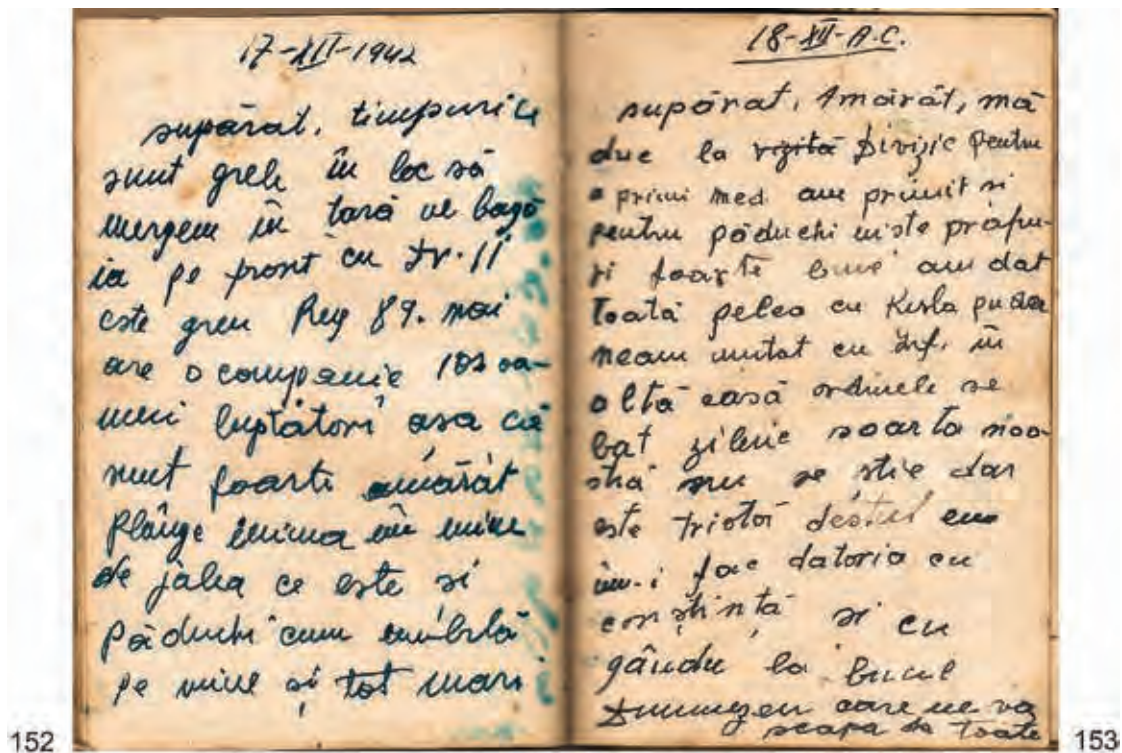 17-XII-1942
supărat, timpurile
sunt grele în loc să
mergem în tară ne bagă
ia pe front cu Dv. 11
este greu Reg 89. mai
are o companie 102 oa-
meni luptători asa că
sunt foarte amărât
Plânge inima în mine
de jalea ce este si
Păduchi cum umblă
pe mine și tot mari
152
18-XII-A.C.
supărat, Amărât, mă
duc la vizită Divizie Pentru
a primi med am primit si
pentru păduchi niste prafu-
ri foarte bune am dat
Toată pelea cu
neam mutat cu Inf. în
altă casă ordinele se
bat zilnic soarta noa-
stră nu se stie dar
este tristă destul eu
îm-i fac datoria cu
conștință si cu
gându la bunul
Dumnezeu care ne va
scapa de toate
153